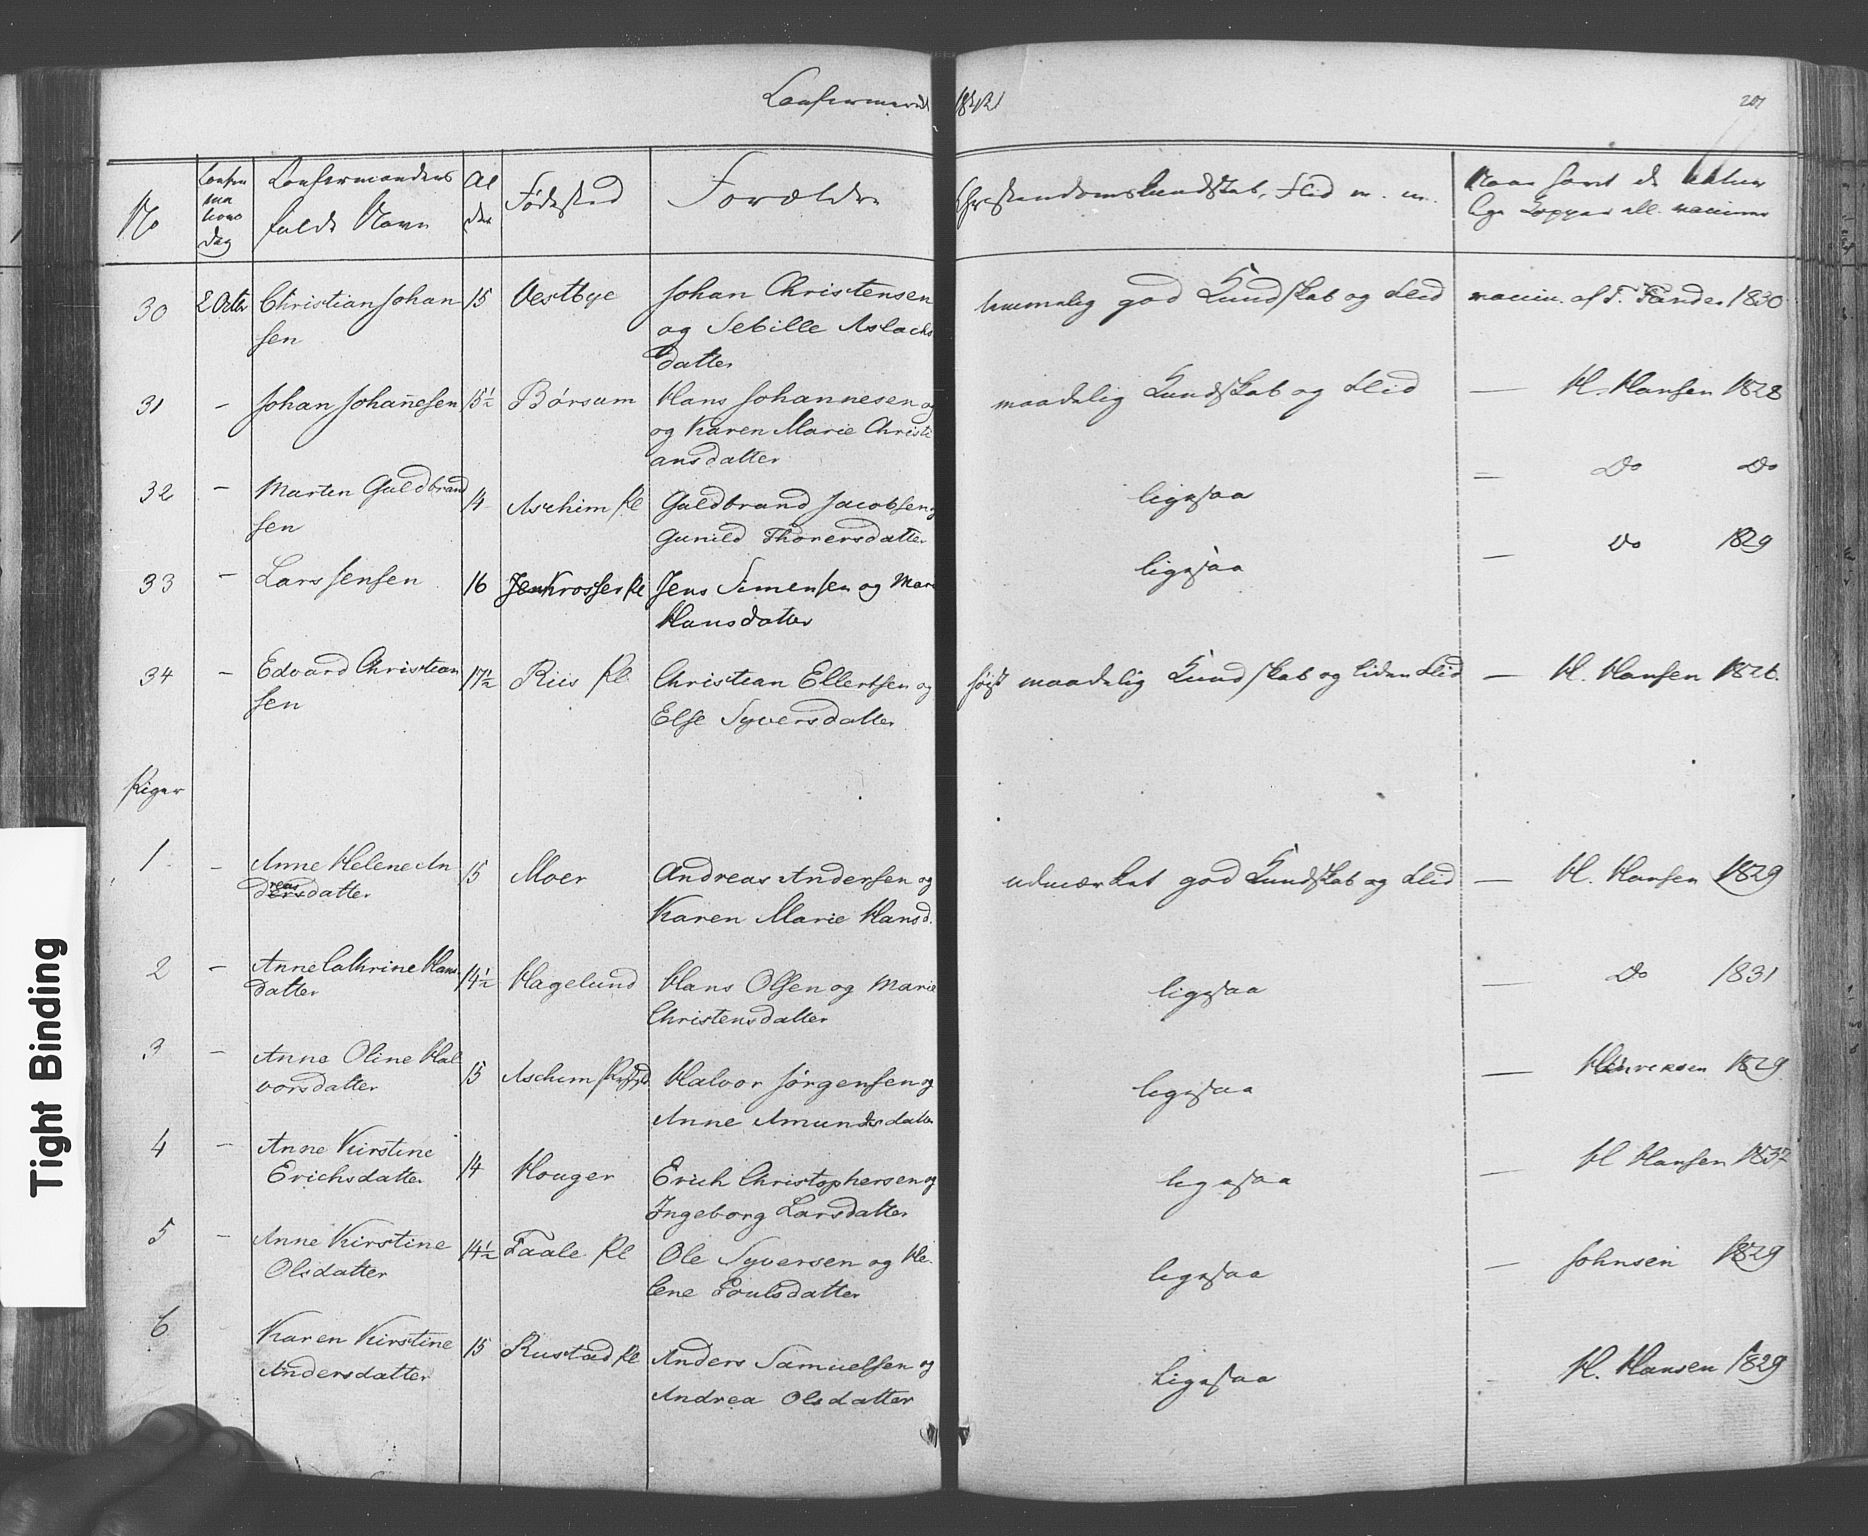 Confirmerede
201
No
Confirmationsdag
Confirmandens
fulde Navn
Alder
Fødested
Forældre
Christendomskundskab, Flid m. m.
30 2 Octbr Christian Johan 15 Vestbye Johan Christensen temmelig god Kundskab og Flid vaccin. af T. 1830
sen og Sebille Aslachs
datter
31 – Johan Johañesen 15½ Børsum Hans Johannesen og maadelig Kundskab og Flid — H. Hansen 1828
og Karen Marie Christi
ansdatter
32 – Marten Guldbrand 14 Aschim Pl Guldbrand Jacobsen og ligesaa — Do Do
sen Gunild Thorersdatter
33 – Lars Jensen 16 Jens Simensen og Mari ligesaa — Do 1829
Hansdatter
34 – Edvard Christian 17½ Riis Pl Christian Ellertsen og høist maadelig Kundskab og liden Flid — H. Hansen 1826.
sen Else Syversdatter
Piger
1 – Anne Helene An 15 Moer Andreas Andersen og udmærket god Kundskab og Flid — H. Hansen 1829
dreasdatter Karen Marie Hansd.
2 – Anne Cathrine Hans 14½ Hagelund Hans Olsen og Marie ligesaa — Do 1831
datter Christensdatter
3 – Anne Oline Hal 15 Aschim Halvor Jørgensen og ligesaa — Henriksen 1829
vorsdatter Anne Amundsdatter
4 – Anne Kirstine 14 Houger Erich Christophersen og ligesaa — H Hansen 1837
Erichsdatter Ingeborg Larsdatter
5 – Anne Kirstine 14½ Faale Pl Ole Syversen og He- ligesaa — Johnsen 1829
Olsdatter lene Poulsdatter
6 Karen Kirstine 15 Rustad Pl Anders Samuelsen og Ligesaa – H. Hansen 1829
Andersdatter Andrea Olsdatter
Tight Binding